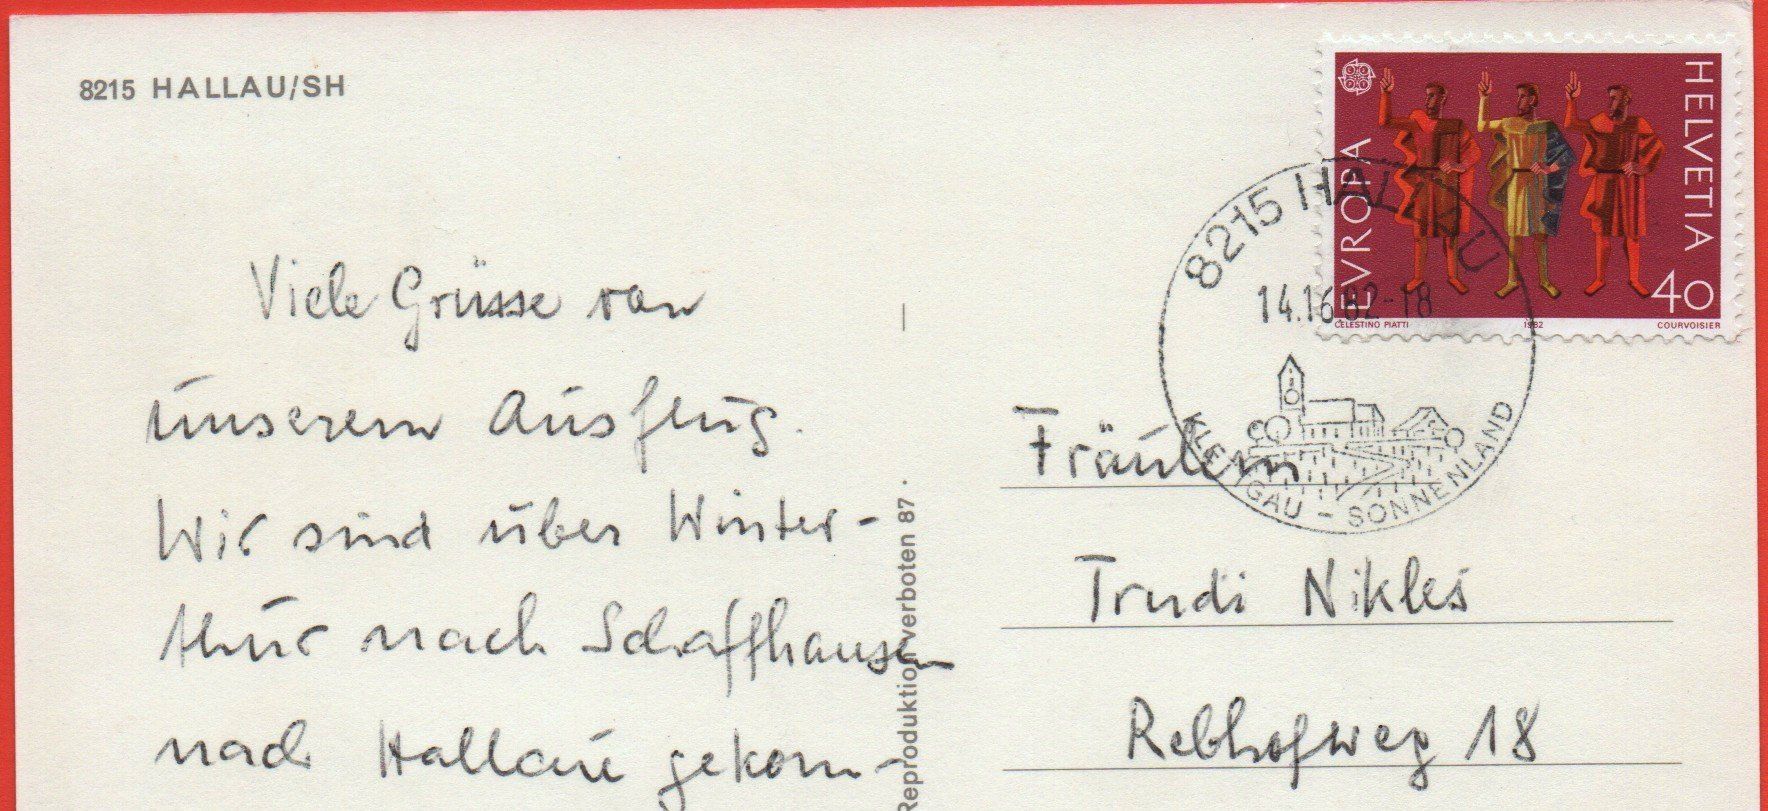 8215 HALLAU/SH
Viele Grüsse von
unserem Ausflug.
Wir sind über Winter-
thur nach Schaffhausen
nach Hallau gekom-
Reproduktion verboten 87
EVROPA
HELVETIA
40
CELESTINO PIATTI
1982
COURVOISIER
8215 HALLAU
82-18
KLETTGAU - SONNENLAND
Fräulein
Trudi Nikles
Rebhofweg 18